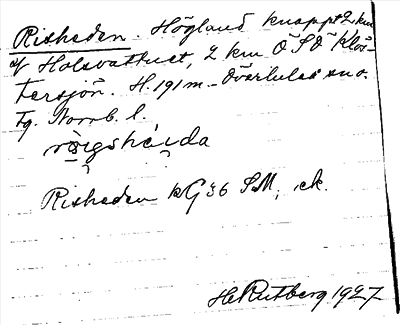 Risheden. Högland knappt 2 km
af Holsvattnet, 2 km Ö SÖ Klös-
tersjön. H. 191 m. Överluleå sn o.
tg. Norrb. l.
Risheden kG 36 SM, ek.
H Rutberg 1927